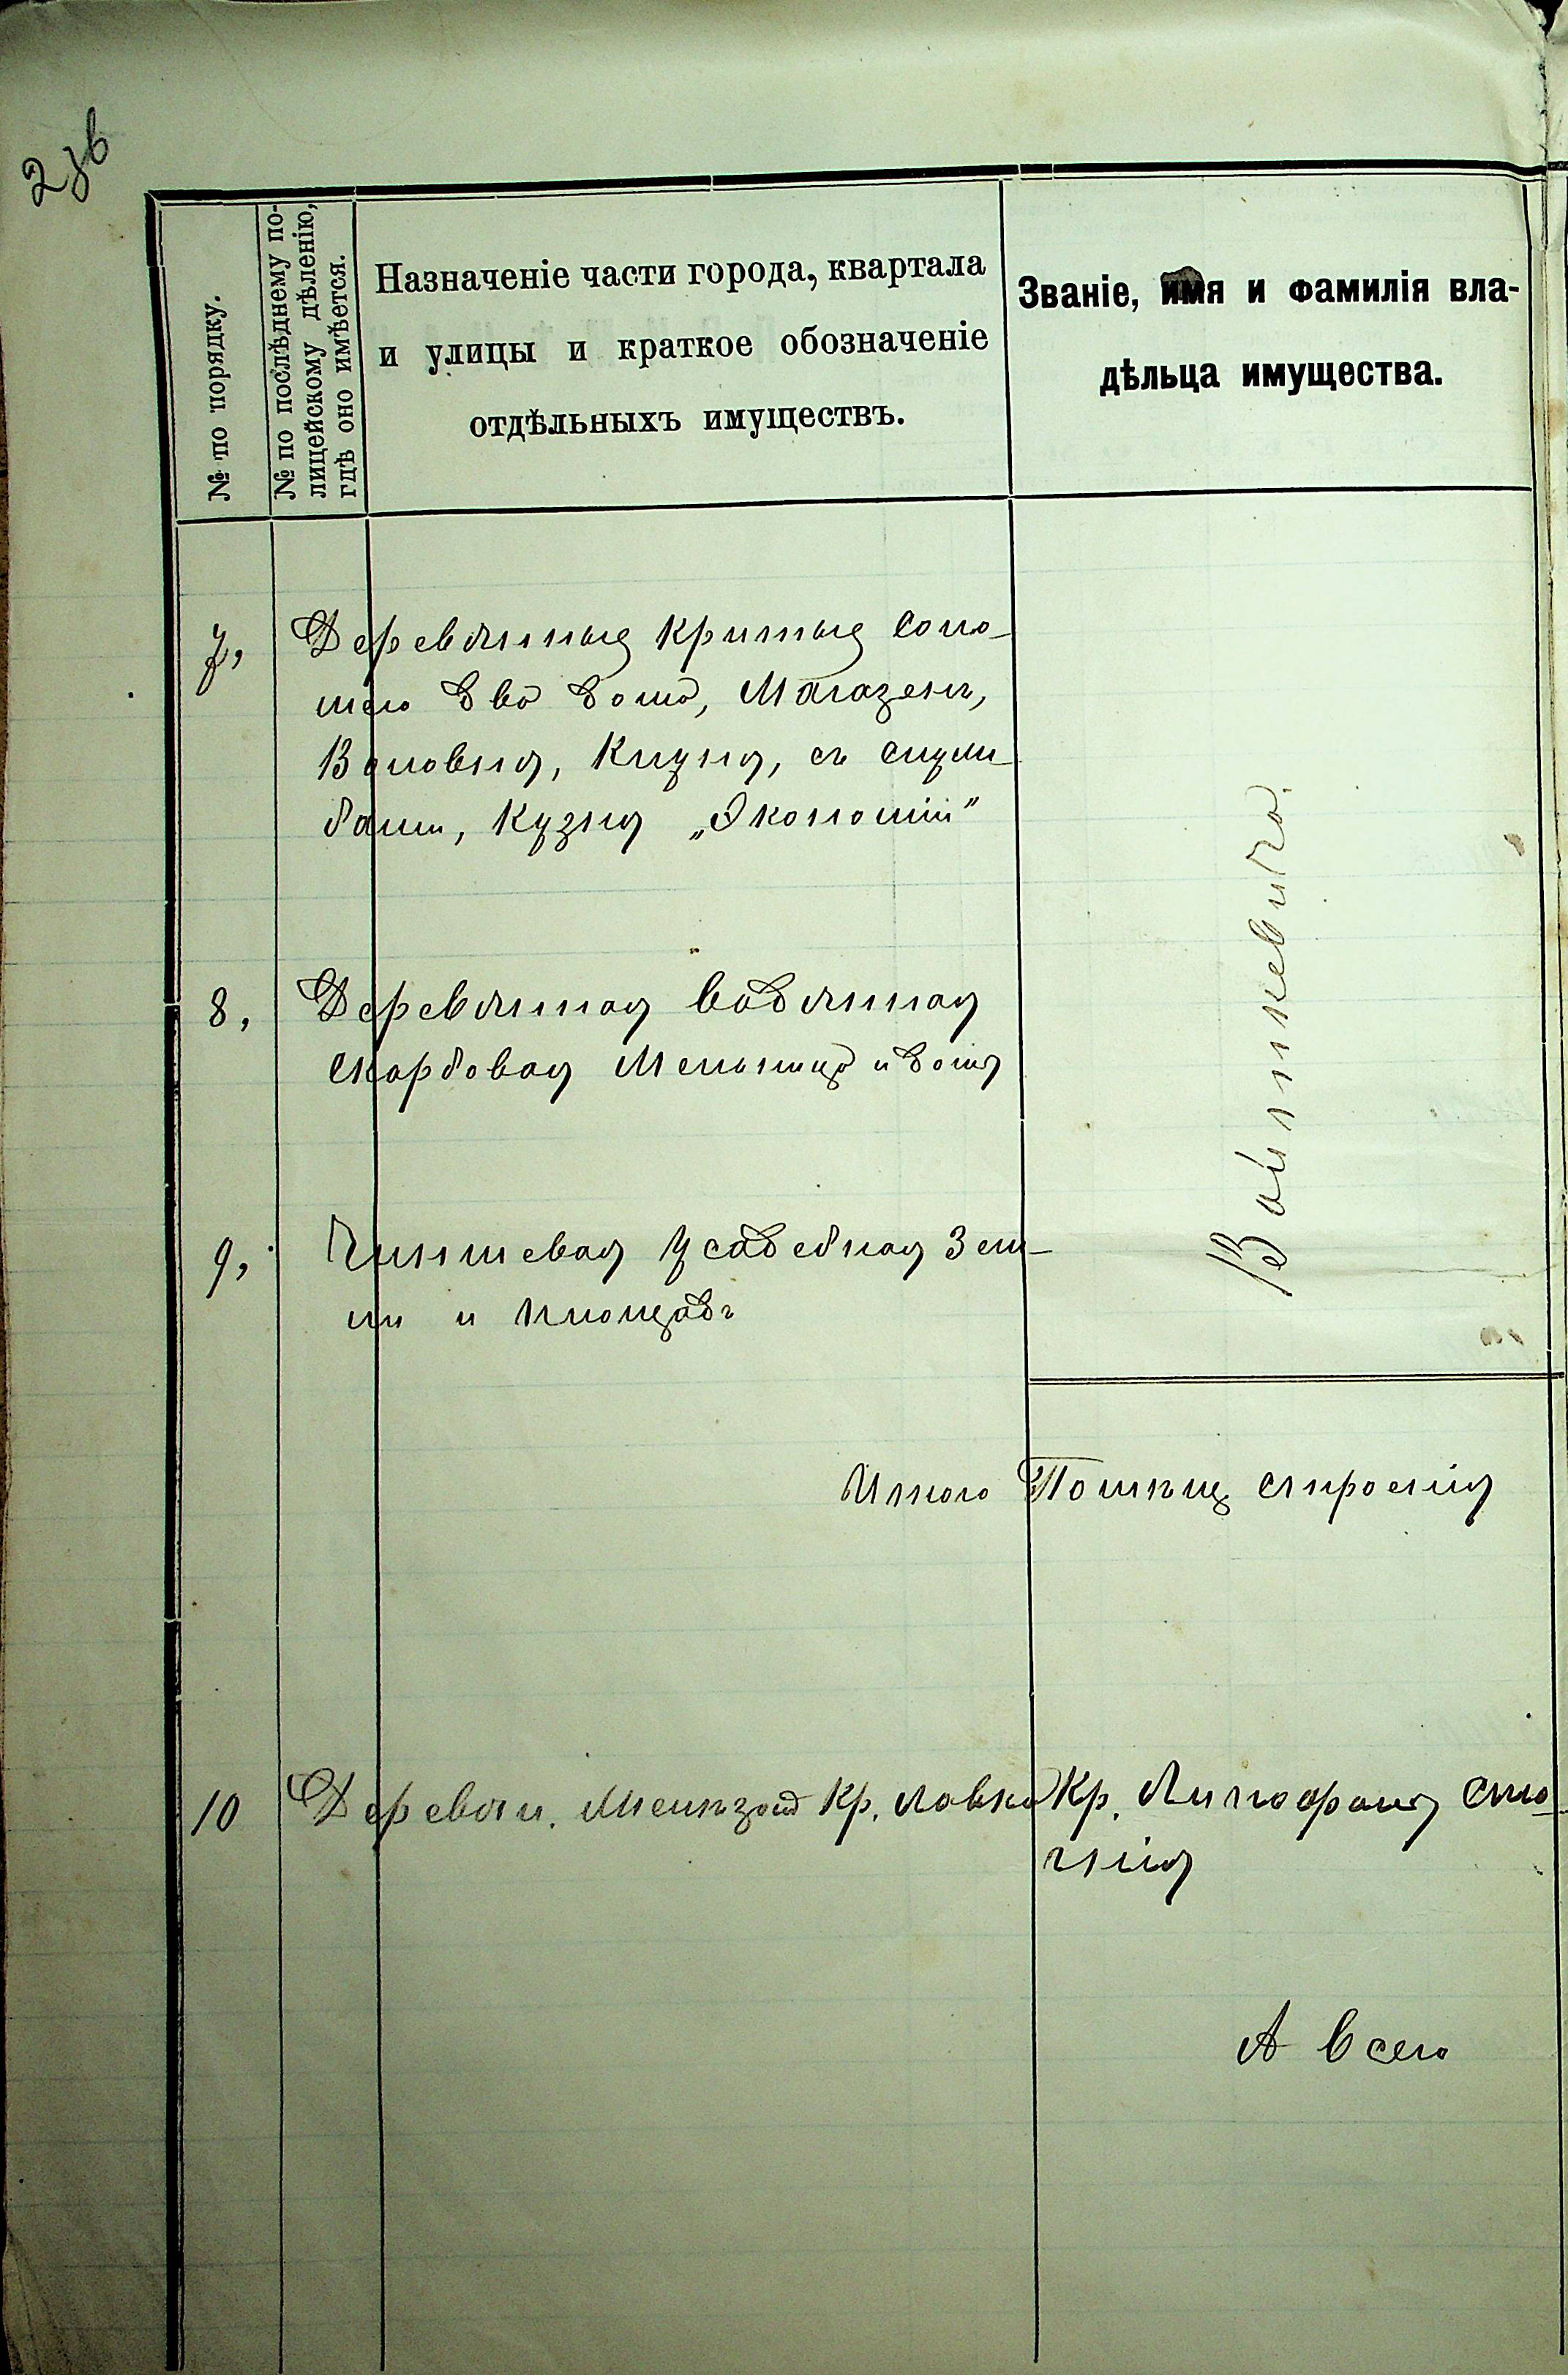 № по порядку.
№ по послѣднему по-
лицейскому дѣленію,
гдѣ оно имѣется.
Назначеніе части города, квартала
и улицы и краткое обозначеніе
отдѣльныхъ имуществъ.
Званіе, имя и фамилія вла-
дѣльца имущества.
7, Деревянные критые соло-
мою два дома, Магазенъ,
Воловня, Кухня, съ
Кузня „Экономіи"
8, Деревянная водяная
скарбовая Мельница и домъ
9, Чиншевая Усадебная Зем-
ли и площадь
Войткевича.
Итого строенія
10 Деревян. Кр. лавка Кр.
А всего